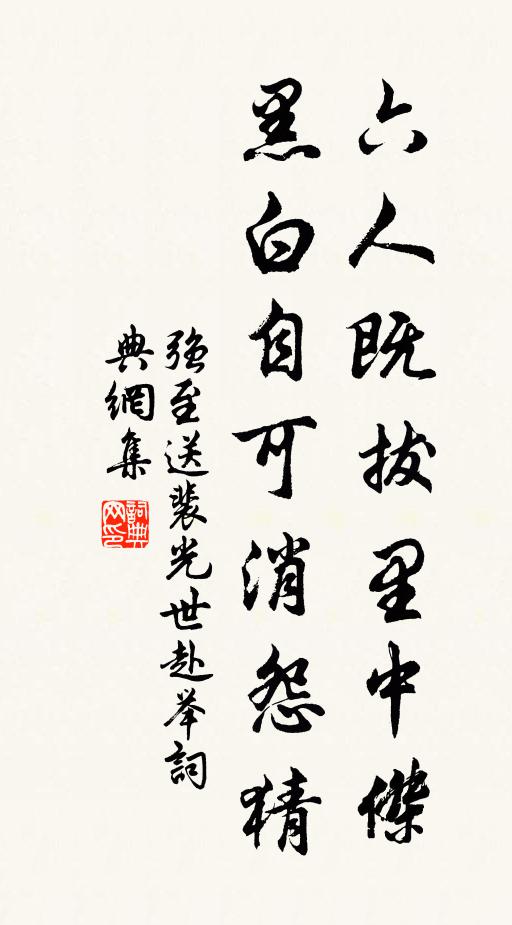 六人既拔里中傑
黑白自可消怨猜
強至送裴光世赴举詞
典網集
詞典
网印